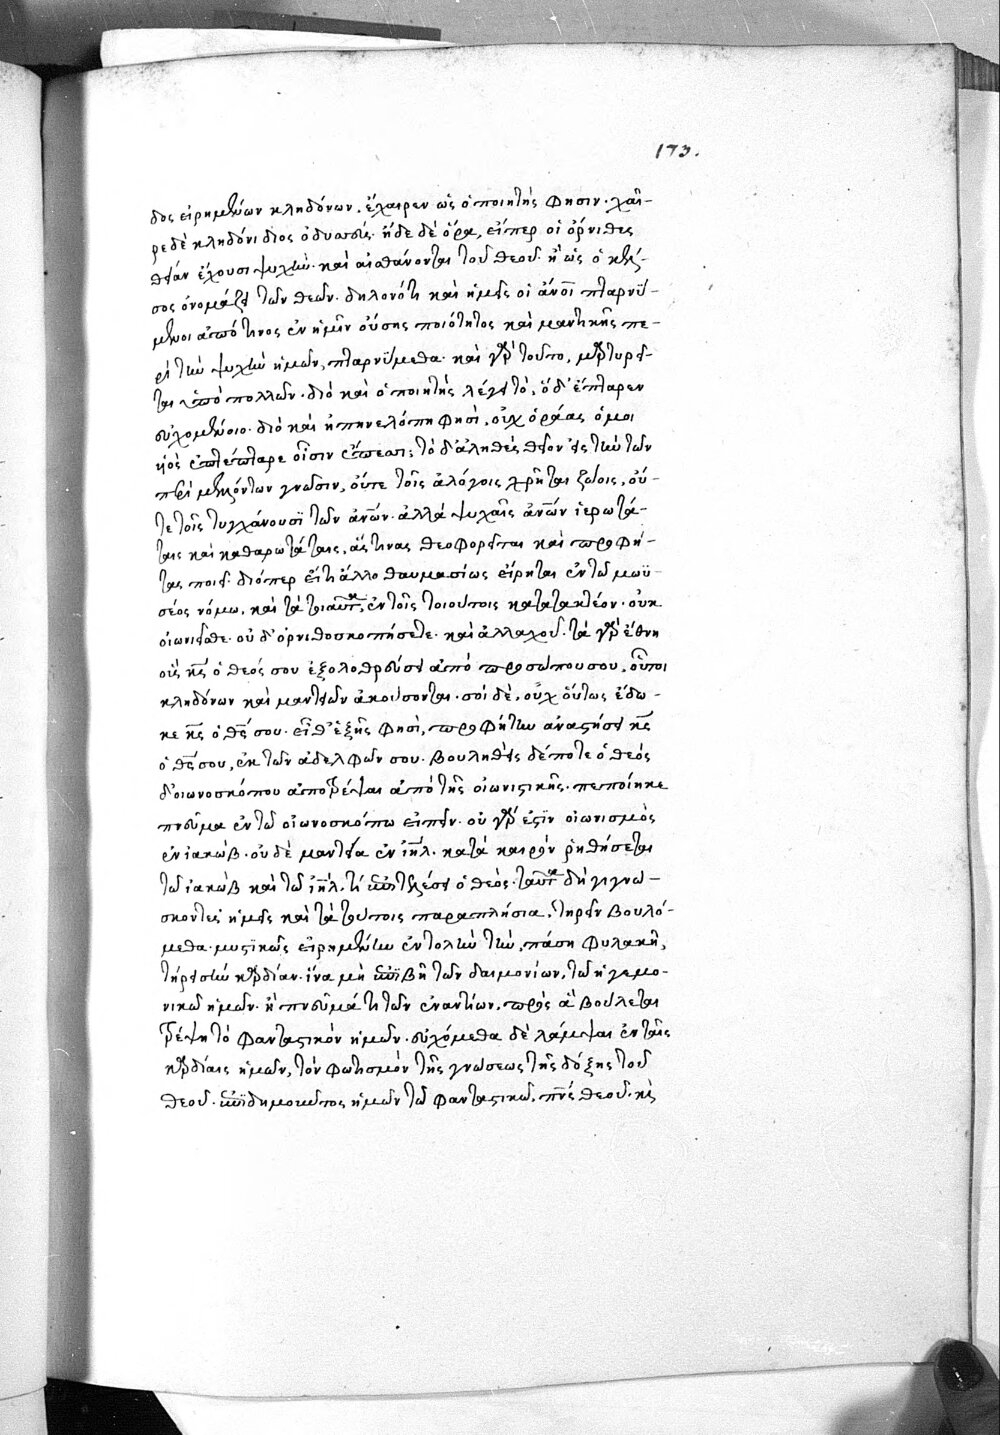 173.
δος εἰρημένων κληδόνων. ἔχαιρεν ὡς ὁ ποιητής φησιν· χαῖ-
ρε δὲ κληδόνι δῖος ὀδυσσεύς· ἤδε δὲ ὅρα, εἴπερ οἱ ὄρνιθες
θείαν ἔχουσι ψυχὴν· καὶ αἰσθάνονται τοῦ θεοῦ· ἢ ὡς ὁ κέλ-
σος ὀνομάζει τῶν θεῶν. δηλονότι καὶ ἡμεῖς οἱ ἄνοι πταρνύ-
μενοι ἀπό τινος ἐν ἡμῖν οὔσης ποιότητος καὶ μαντικῆς πε-
ρὶ τὴν ψυχὴν ἡμῶν, πταρνύμεθα· καὶ γὰρ τοῦτο, μαρτυρεῖ-
ται ὑπὸ πολλῶν. διὸ καὶ ὁ ποιητὴς λέγει τὸ, ὁ δ' ἔπταρεν
εὐχομένοιο· διὸ καὶ ἡ πηνελόπη φησὶ, οὐχ ὁράας ὅ μοι
υἱὸς ἐπέπταρε οἷσιν ἔπεσι; τὸ δ' ἀληθὲς θεῖον εἰς τὴν τῶν
περὶ μελλόντων γνῶσιν, οὔτε τοῖς ἀλόγοις χρῆται ζώοις, οὔ-
τε τοῖς τυγχάνουσϊ τῶν ἀνῶν· ἀλλὰ ψυχαῖς ἀνῶν ἱερωτά-
ταις καὶ καθαρωτάταις, ἅς τινας θεοφορεῖται καὶ προφή-
τας ποιεῖ· διόπερ εἴ τι ἄλλο θαυμασίως εἴρηται ἐν τῶ μωϋ-
σέος νόμω, καὶ τὰ τοιαῦτα, ἐν τοῖς τοιούτοις κατατακτέον· οὐκ
οἰωνιεῖσθε· οὐδ' ὀρνιθοσκοπήσετε· καὶ ἀλλαχοῦ. τὰ γὰρ ἔθνη
οὓς κς ὁ θεός σου ἐξολοθρεύσει ἀπὸ προσώπου σου, οὗτοι
κληδόνων καὶ μαντειῶν ἀκούσονται· σοὶ δὲ, οὐχ οὕτως ἔδω-
κε κς ὁ θς σου. εἶθ' ἑξῆς φησὶ, προφήτην ἀναστήσει κς
ὁ θς σου, ἐκ τῶν ἀδελφῶν σου. βουληθεὶς δέ ποτε ὁ θεὸς
δ' οἰωνοσκόπου ἀποτρέψαι ἀπὸ τῆς οἰωνιστικῆς· πεποίηκε
πνεῦμα ἐν τῶ οἰωνοσκόπω εἰπεῖν· οὐ γὰρ ἐστὶν οἰωνισμὸς
ἐν ἰακώβ. οὐδὲ μαντεία ἐν ἰηλ. κατὰ καιρὸν ῥηθήσεται
τῶ ἰακὼβ καὶ τῶ ἰηλ, τί ἐπιτελέσει ὁ θεὸς· ταῦτα δὴ γιγνώ-
σκοντες ἡμεῖς καὶ τὰ τούτοις παραπλήσια, τηρεῖν βουλό-
μεθα· μυστικῶς εἰρημένην ἐντολὴν τὴν, πάση φυλακῆ,
τήρει σὴν καρδίαν· ἵνα μὴ ἐπϊβῆ τῶν δαιμονίων, τῶ ἡγεμο-
νικῶ ἡμῶν· ἢ πνεῦμά τι τῶν ἐναντίων, πρὸς ἃ βούλεται
τρέψη τὸ φανταστικὸν ἡμῶν· εὐχόμεθα δὲ λάμψαι ἐν ταῖς
καρδίαις ἡμῶν, τὸν φωτισμὸν τῆς γνώσεως τῆς δόξης τοῦ
θεοῦ. ἐπϊδημοῦντος ἡμῶν τῶ φανταστικῶ, πνς θεοῦ. κὶ